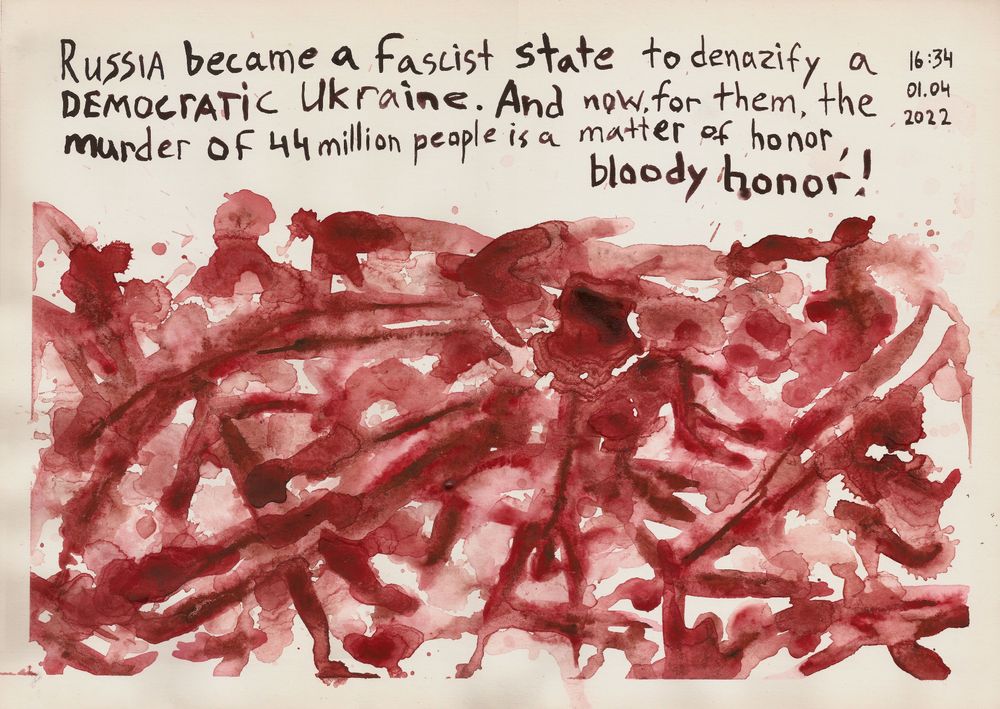 RUSSIA became a fascist state to denazify a
DEMOCRATiC Ukraine. And now, for them, the
murder OF 44 million people is a matter of honor,
bloody honor!
16:34
01.04
2022